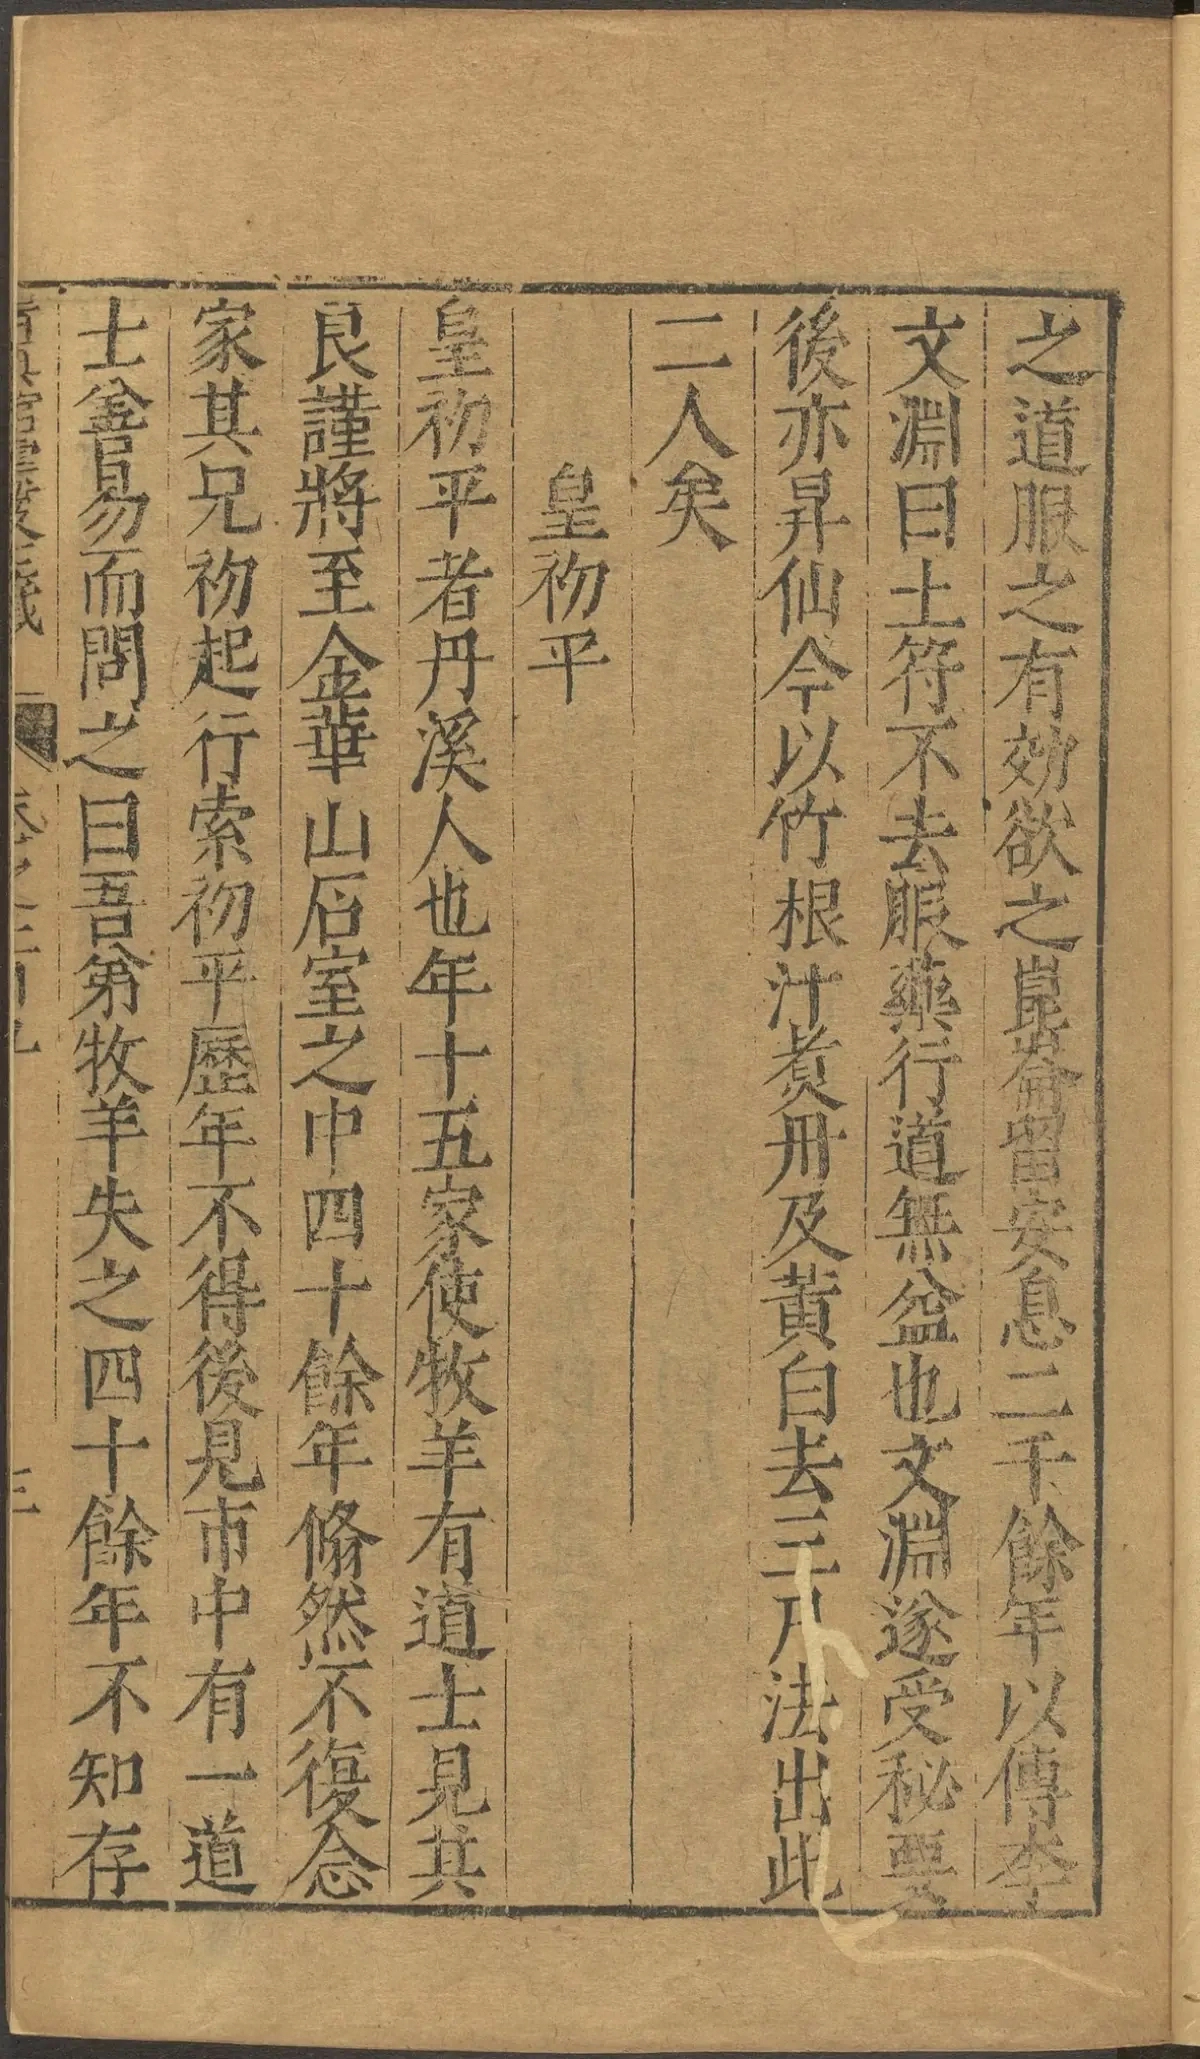 之道服之有効欲之崑崙留安息二千餘年以傳李
文淵曰土符不去服藥行道無益也文淵遂受秘要
後亦昇仙今以竹根汁煮丹及黄白去三尸法出此
二人矣
皇初平
皇初平者丹溪人也年十五家使牧羊有道士見其
良謹將至金華山石室之中四十餘年翛然不復念
家其兄初起行索初平歷年不得後見市中有一道
士善易而問之曰吾弟牧羊失之四十餘年不知存